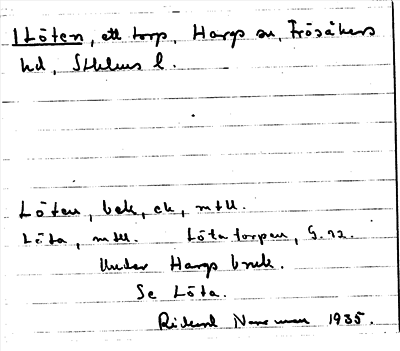 Löten, ett torp, Hargs sn, Frösåkers
hd, Sthlms l.
Löten, bek, ek, mtll.
Löta, mtll. Lötatorpen, G.72.
Under Hargs bruk.
Se Löta.
Rickard 1935.